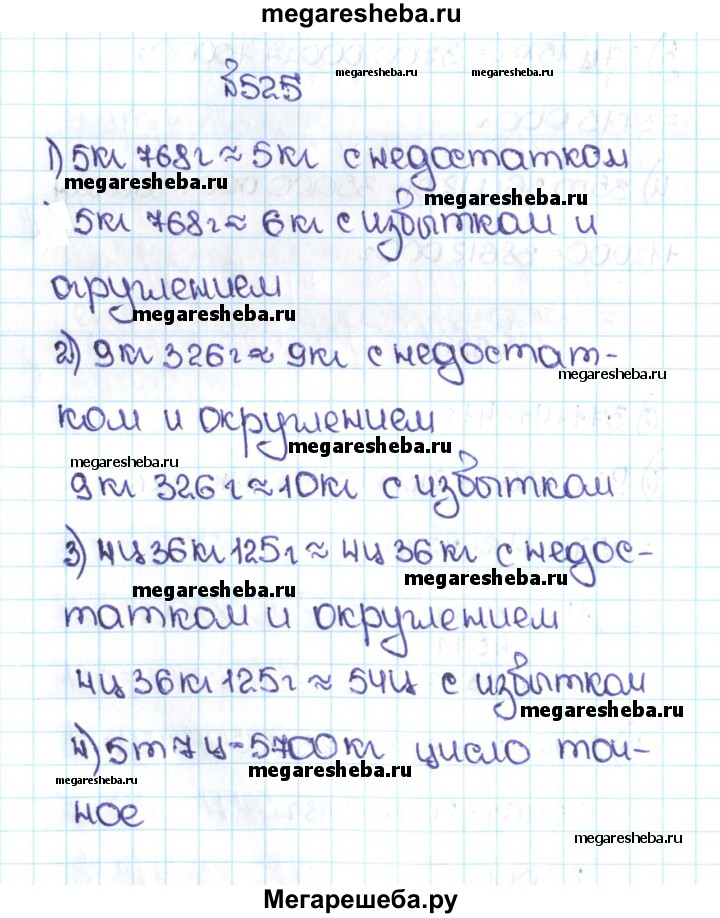 megaresheba.ru
№525
megaresheba.ru megaresheba.ru
1) 5кг 768г ≈ 5кг с недостатком
megaresheba.ru megaresheba.ru
5кг 768г ≈ 6кг с избытком и
округлением
megaresheba.ru
2) 9кг 326г ≈ 9кг с недостат-
megaresheba.ru
ком и округлением
megaresheba.ru
megaresheba.ru
9кг 326г ≈ 10кг с избытком
3) 4ц 36кг 125г ≈ 4ц 36кг с недос-
megaresheba.ru megaresheba.ru
татком и округлением
4ц 36кг 125г ≈ 54ц с избытком
megaresheba.ru
4) 5т 7ц = 5700кг число точ-
megaresheba.ru
megaresheba.ru
ное
megaresheba.ru
Мегарешеба.ру